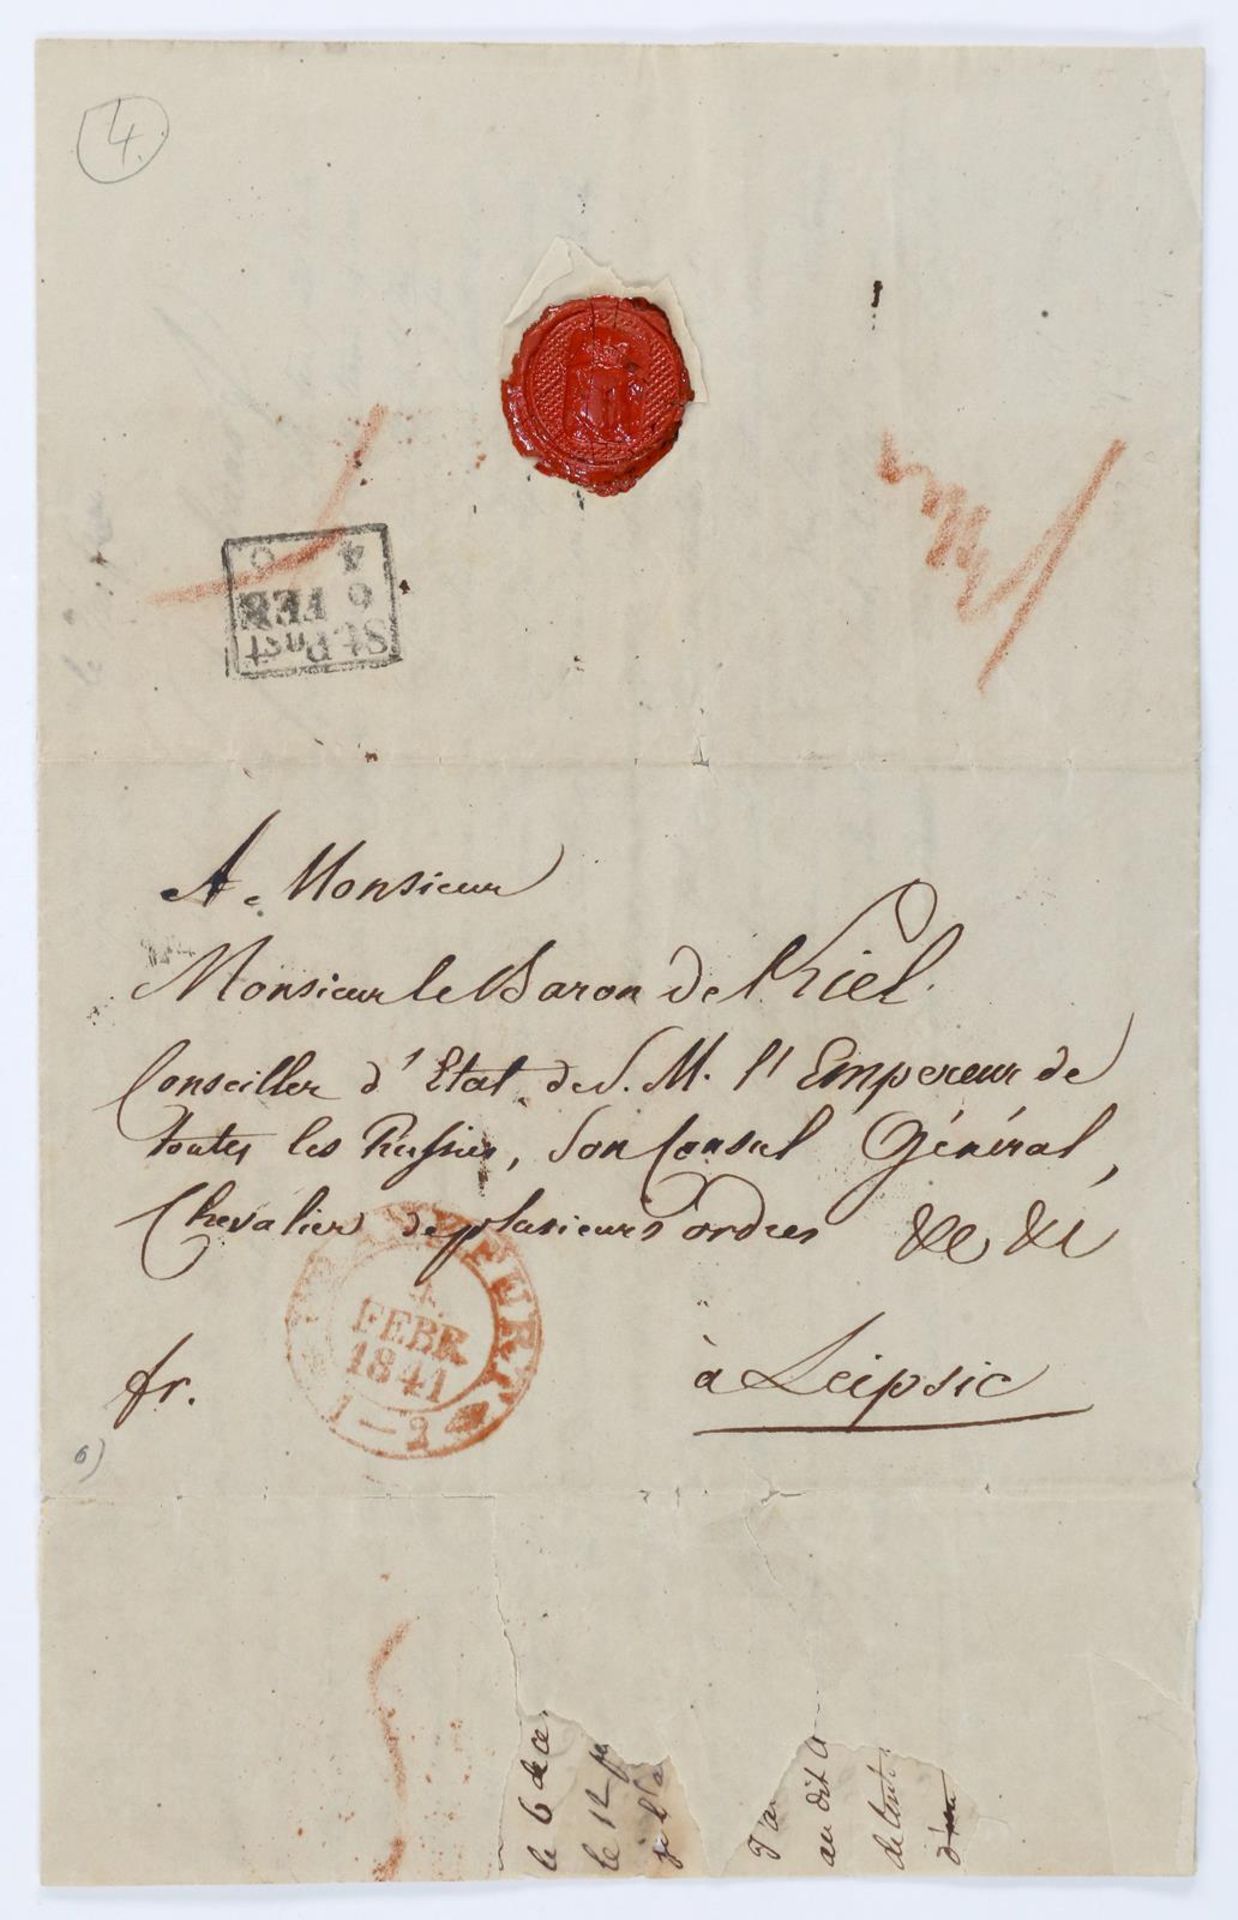 4.
St. Post
6 FEB
4 6
A Monsieur
Monsieur le Baron de Kiel.
Conseiller d'Etat de S. M. l'Empereur de
toutes les Russies, Son Consul Général,
Chevalier de plusieurs ordres &c &c
fr.
à Leipsic
6)
4
FEBR.
1841
1-2
le 6 de ce
le 12
J'a
au dit
de